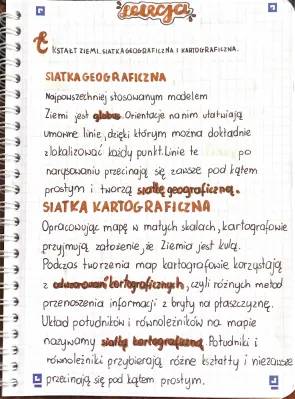 lekcja
t KSTAŁT ZIEMI. SIATKA GEOGRAFICZNA I KARTOGRAFICZNA.
SIATKA GEOGRAFICZNA
Najpowszechniej stosowanym modelem
Ziemi jest globus. Orientację na nim ułatwiają
umowne linie, dzięki którym można dokładnie
zlokalizować każdy punkt. Linie te po
narysowaniu przecinają się zawsze pod kątem
prostym i tworzą siatkę geograficzną.
SIATKA KARTOGRAFICZNA
Opracowując mapę w małych skalach, kartografowie
przyjmują założenie, że Ziemia jest kulą.
Podczas tworzenia map kartografowie korzystają
z odwzorowań kartograficznych, czyli różnych metod
przenoszenia informacji z bryły na płaszczyznę.
Układ południków i równoleżników na mapie
nazywamy siatką kartograficzną. Południki i
równoleżniki przybierają różne kształty i niezawsze
przecinają się pod kątem prostym.